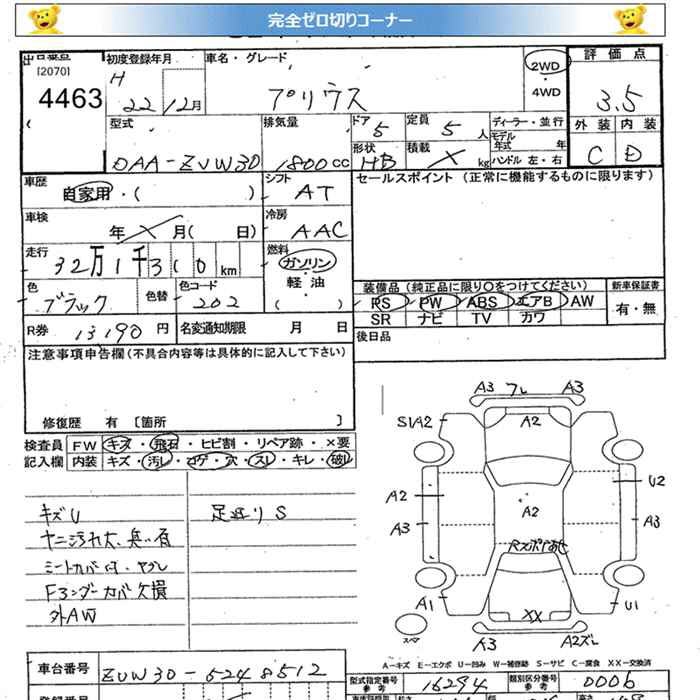 完全ゼロ切りコーナー
[2070]
4463
初度登録年月
H 22 12月
車名・グレード
プリウス
2WD
・
4WD
評価点
3.5
外装 内装
C D
型式
DAA-ZVW30
排気量
1800 CC
ドア 5
形状 HB
定員 5 人
積載 kg
ディーラー・並行
モデル年式 年
ハンドル 左・右
車歴
自家用・( )
シフト
AT
セールスポイント (正常に機能するものに限ります)
車検
年 月( 日)
冷房
AAC
走行
32万1千310 km
燃料
ガソリン
・
軽油
( )
色
ブラック
色替
色コード
202
装備品(純正品に限り○をつけてください)
新車保証書
PS PW ABS エアB AW
有・無
SR ナビ TV カワ
R券 13190 円
名変通知期限 月 日
後日品
注意事項申告欄(不具合内容等は具体的に記入して下さい)
修復歴 有 [箇所 ]
検査員
記入欄
FW キズ・飛石・ヒビ割・リペア跡・×要
内装 キズ・汚レ・コゲ・穴・スレ・キレ・破レ
キズU
足廻りS
ヤニ汚れ大、臭い有
シートカバー付・ヤブレ
Fアンダーカバー欠損
外AW
A3 フレ A3
S1A2
A2
U2
A2
A2
A3
A3
A1
U1
XX
スペア
A3
A2ズレ
A-キズ E-エクボ U-凹み W-補修跡 S-サビ C-腐食 XX-交換済
車台番号
ZVW30-5248512
型式指定番号
参考
16294
類別区分番号
参考
0006